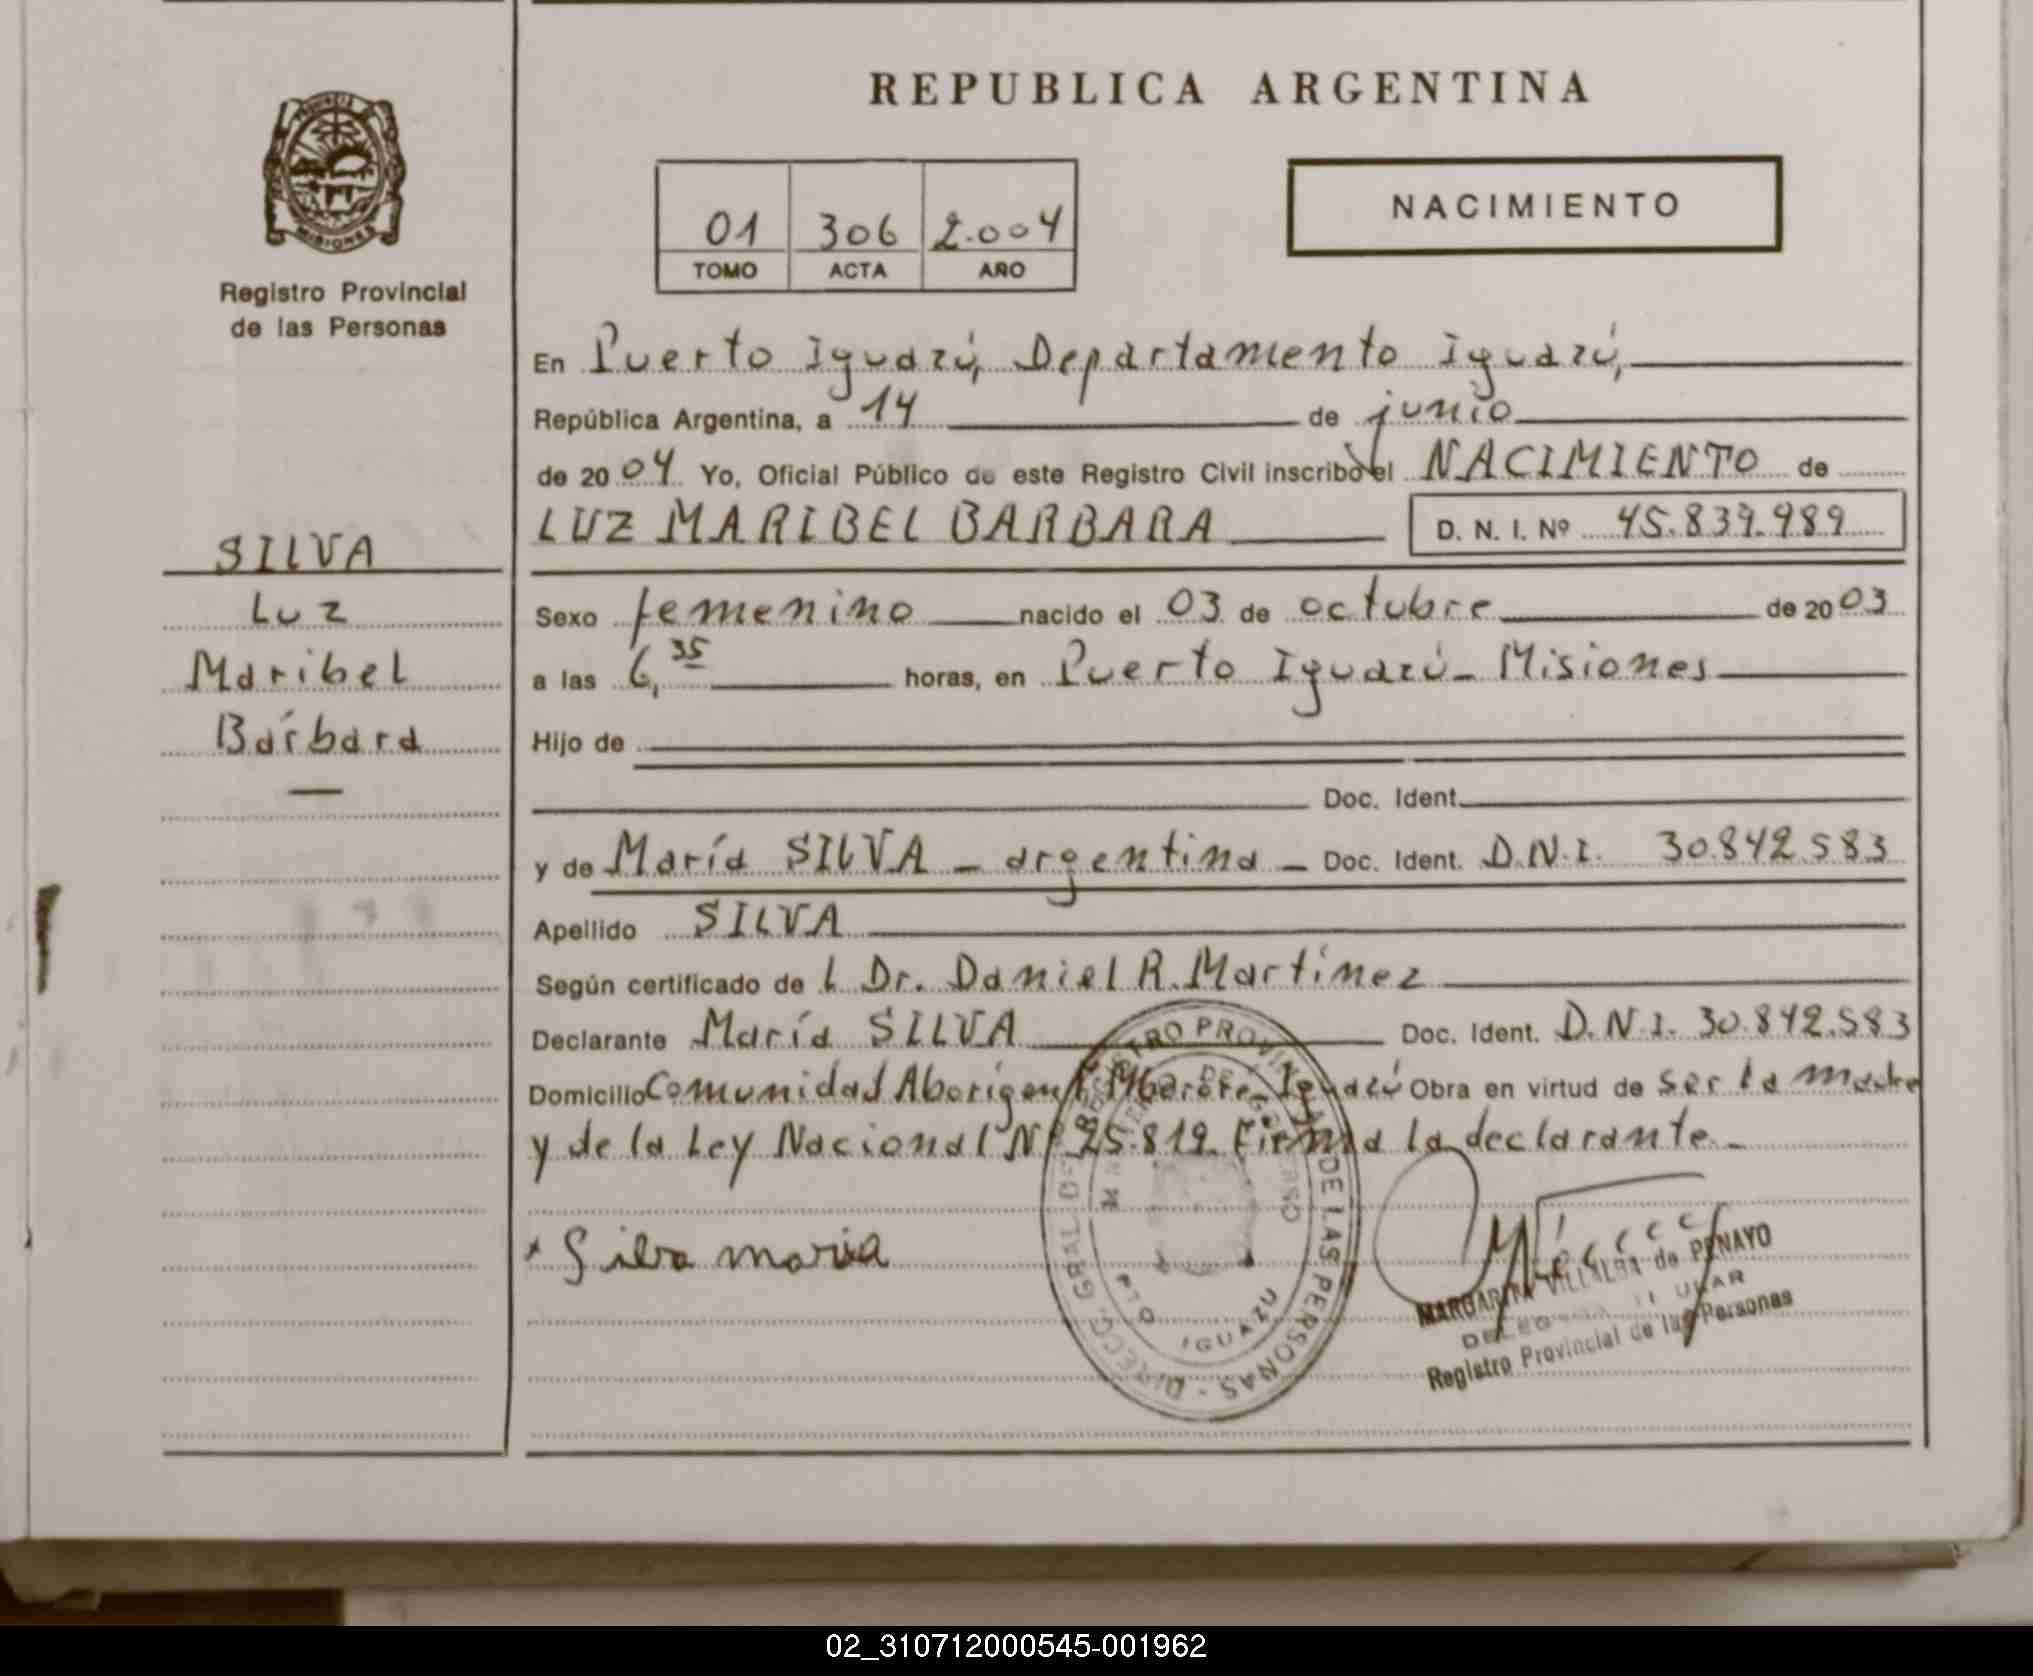 REPUBLICA ARGENTINA
NACIMIENTO
01 306 2.004
TOMO ACTA AÑO
MISIONES
Registro Provincial
de las Personas
SILVA
Luz
Maribel
Bárbara
En Puerto Iguazú, Departamento Iguazú,
República Argentina, a 14 de junio
de 2004 Yo, Oficial Público de este Registro Civil inscribo el NACIMIENTO de
LUZ MARIBEL BARBARA D. N. I. Nº 45.839.989
Sexo femenino nacido el 03 de octubre de 2003
a las 6,35 horas, en Puerto Iguazú - Misiones
Hijo de
Doc. Ident.
y de María SILVA - argentina - Doc. Ident. D.N.I. 30.842.583
Apellido SILVA
Según certificado de l Dr. Daniel R. Martínez
Declarante María SILVA Doc. Ident. D.N.I. 30.842.583
Domicilio Comunidad Aborigen Mbororé - Iguazú Obra en virtud de ser la madre
y de la Ley Nacional Nº 25.819. Firma la declarante.-
x Silva maria
DIRECC. GRAL. DEL REGISTRO PROVINCIAL DE LAS PERSONAS -
PTO IGUAZU
MARGARITA VILLALBA de PENAYO
Registro Provincial de las Personas
02_310712000545-001962